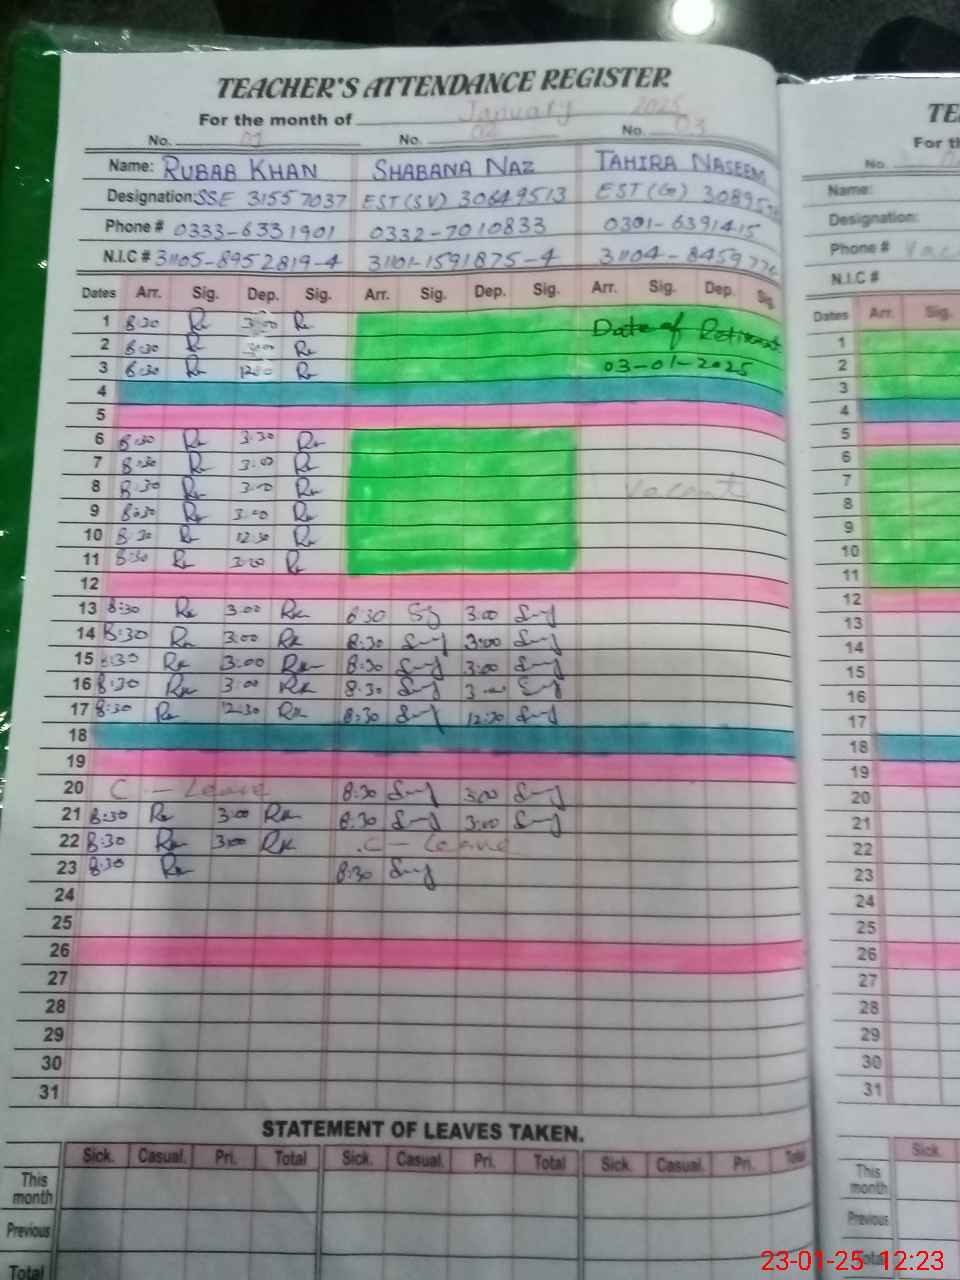 TEACHER'S ATTENDANCE REGISTER
For the month of January 2025
No. 01 No. 02 No. 03
Name: RUBAB KHAN SHABANA NAZ TAHIRA NASEEM
Designation: SSE 31557037 EST (SV) 30649513 EST (G)
Phone # 0333-6331901 0332-7010833 0301-6391415
N.I.C # 31105-8952819-4 31101-1591875-4 31104-
Dates Arr. Sig. Dep. Sig. Arr. Sig. Dep. Sig. Arr. Sig. Dep. Sig.
1 8:30 3:00 Date of Retirement
2 8:30 3:00
3 8:30 12:30 03-01-2025
4
5
6 8:30 3:30
7 8:30 3:00
8 8:30 3:00 Vacant
9 8:30 3:00
10 8:30 12:30
11 8:30 3:00
12
13 8:30 3:00 8:30 3:00
14 8:30 3:00 8:30 3:00
15 8:30 3:00 8:30 3:00
16 8:30 3:00 8:30 3:00
17 8:30 12:30 8:30 12:30
18
19
20 C - Leave 8:30 3:00
21 8:30 3:00 8:30 3:00
22 8:30 3:00 C - Leave
23 8:30 8:30
24
25
26
27
28
29
30
31
STATEMENT OF LEAVES TAKEN.
Sick. Casual. Pri. Total Sick. Casual. Pri. Total Sick. Casual. Pri. Total
This month
Previous
Total
TE
For th
No.
Name:
Designation:
Phone #
N.I.C #
Dates Arr. Sig.
1
2
3
4
5
6
7
8
9
10
11
12
13
14
15
16
17
18
19
20
21
22
23
24
25
26
27
28
29
30
31
Sick.
This month
Previous
Total
23-01-25 12:23